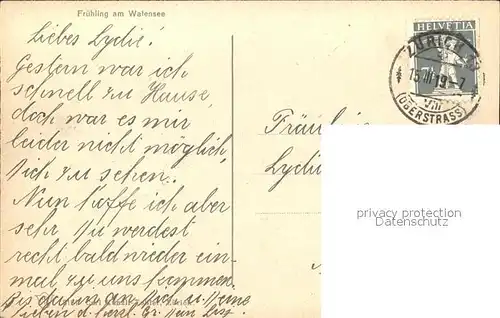 Frühling am Walensee
Liebes Lydie!
Gestern war ich
schnell zu Hause,
doch war es mir
leider nicht möglich,
Dich zu sehen.
Nun hoffe ich aber
sehr Du werdest
recht bald wieder ein-
mal zu uns kommen.
Bis dann an Dich u. Deine
Lieben d. herzl. Gr. Dein
HELVETIA
ZÜRICH 8
15 III 19 - 7
VIII
(OBERSTRASS)
Fräulein
Lydie
privacy protection
Datenschutz